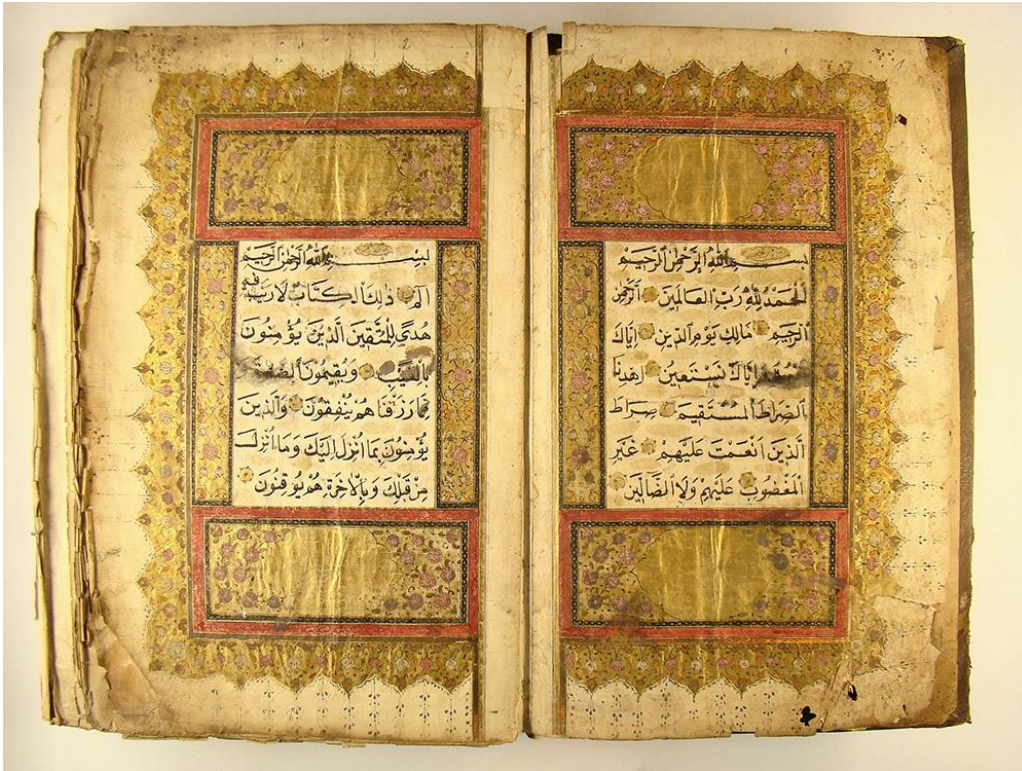 بسم الله الرحمن الرحيم
الحمد لله رب العالمين الرحمن
الرحيم مالك يوم الدين اياك
اياك نستعين اهدنا
الصراط المستقيم صراط
الذين انعمت عليهم غير
المغضوب عليهم ولا الضالين
بسم الله الرحمن الرحيم
الم ذلك الكتاب لا ريب فيه
هدى للمتقين الذين يؤمنون
بالغيب ويقيمون الصلوة
مما رزقناهم ينفقون والذين
يؤمنون بما انزل اليك وما انزل
من قبلك وبالآخرة هم يوقنون